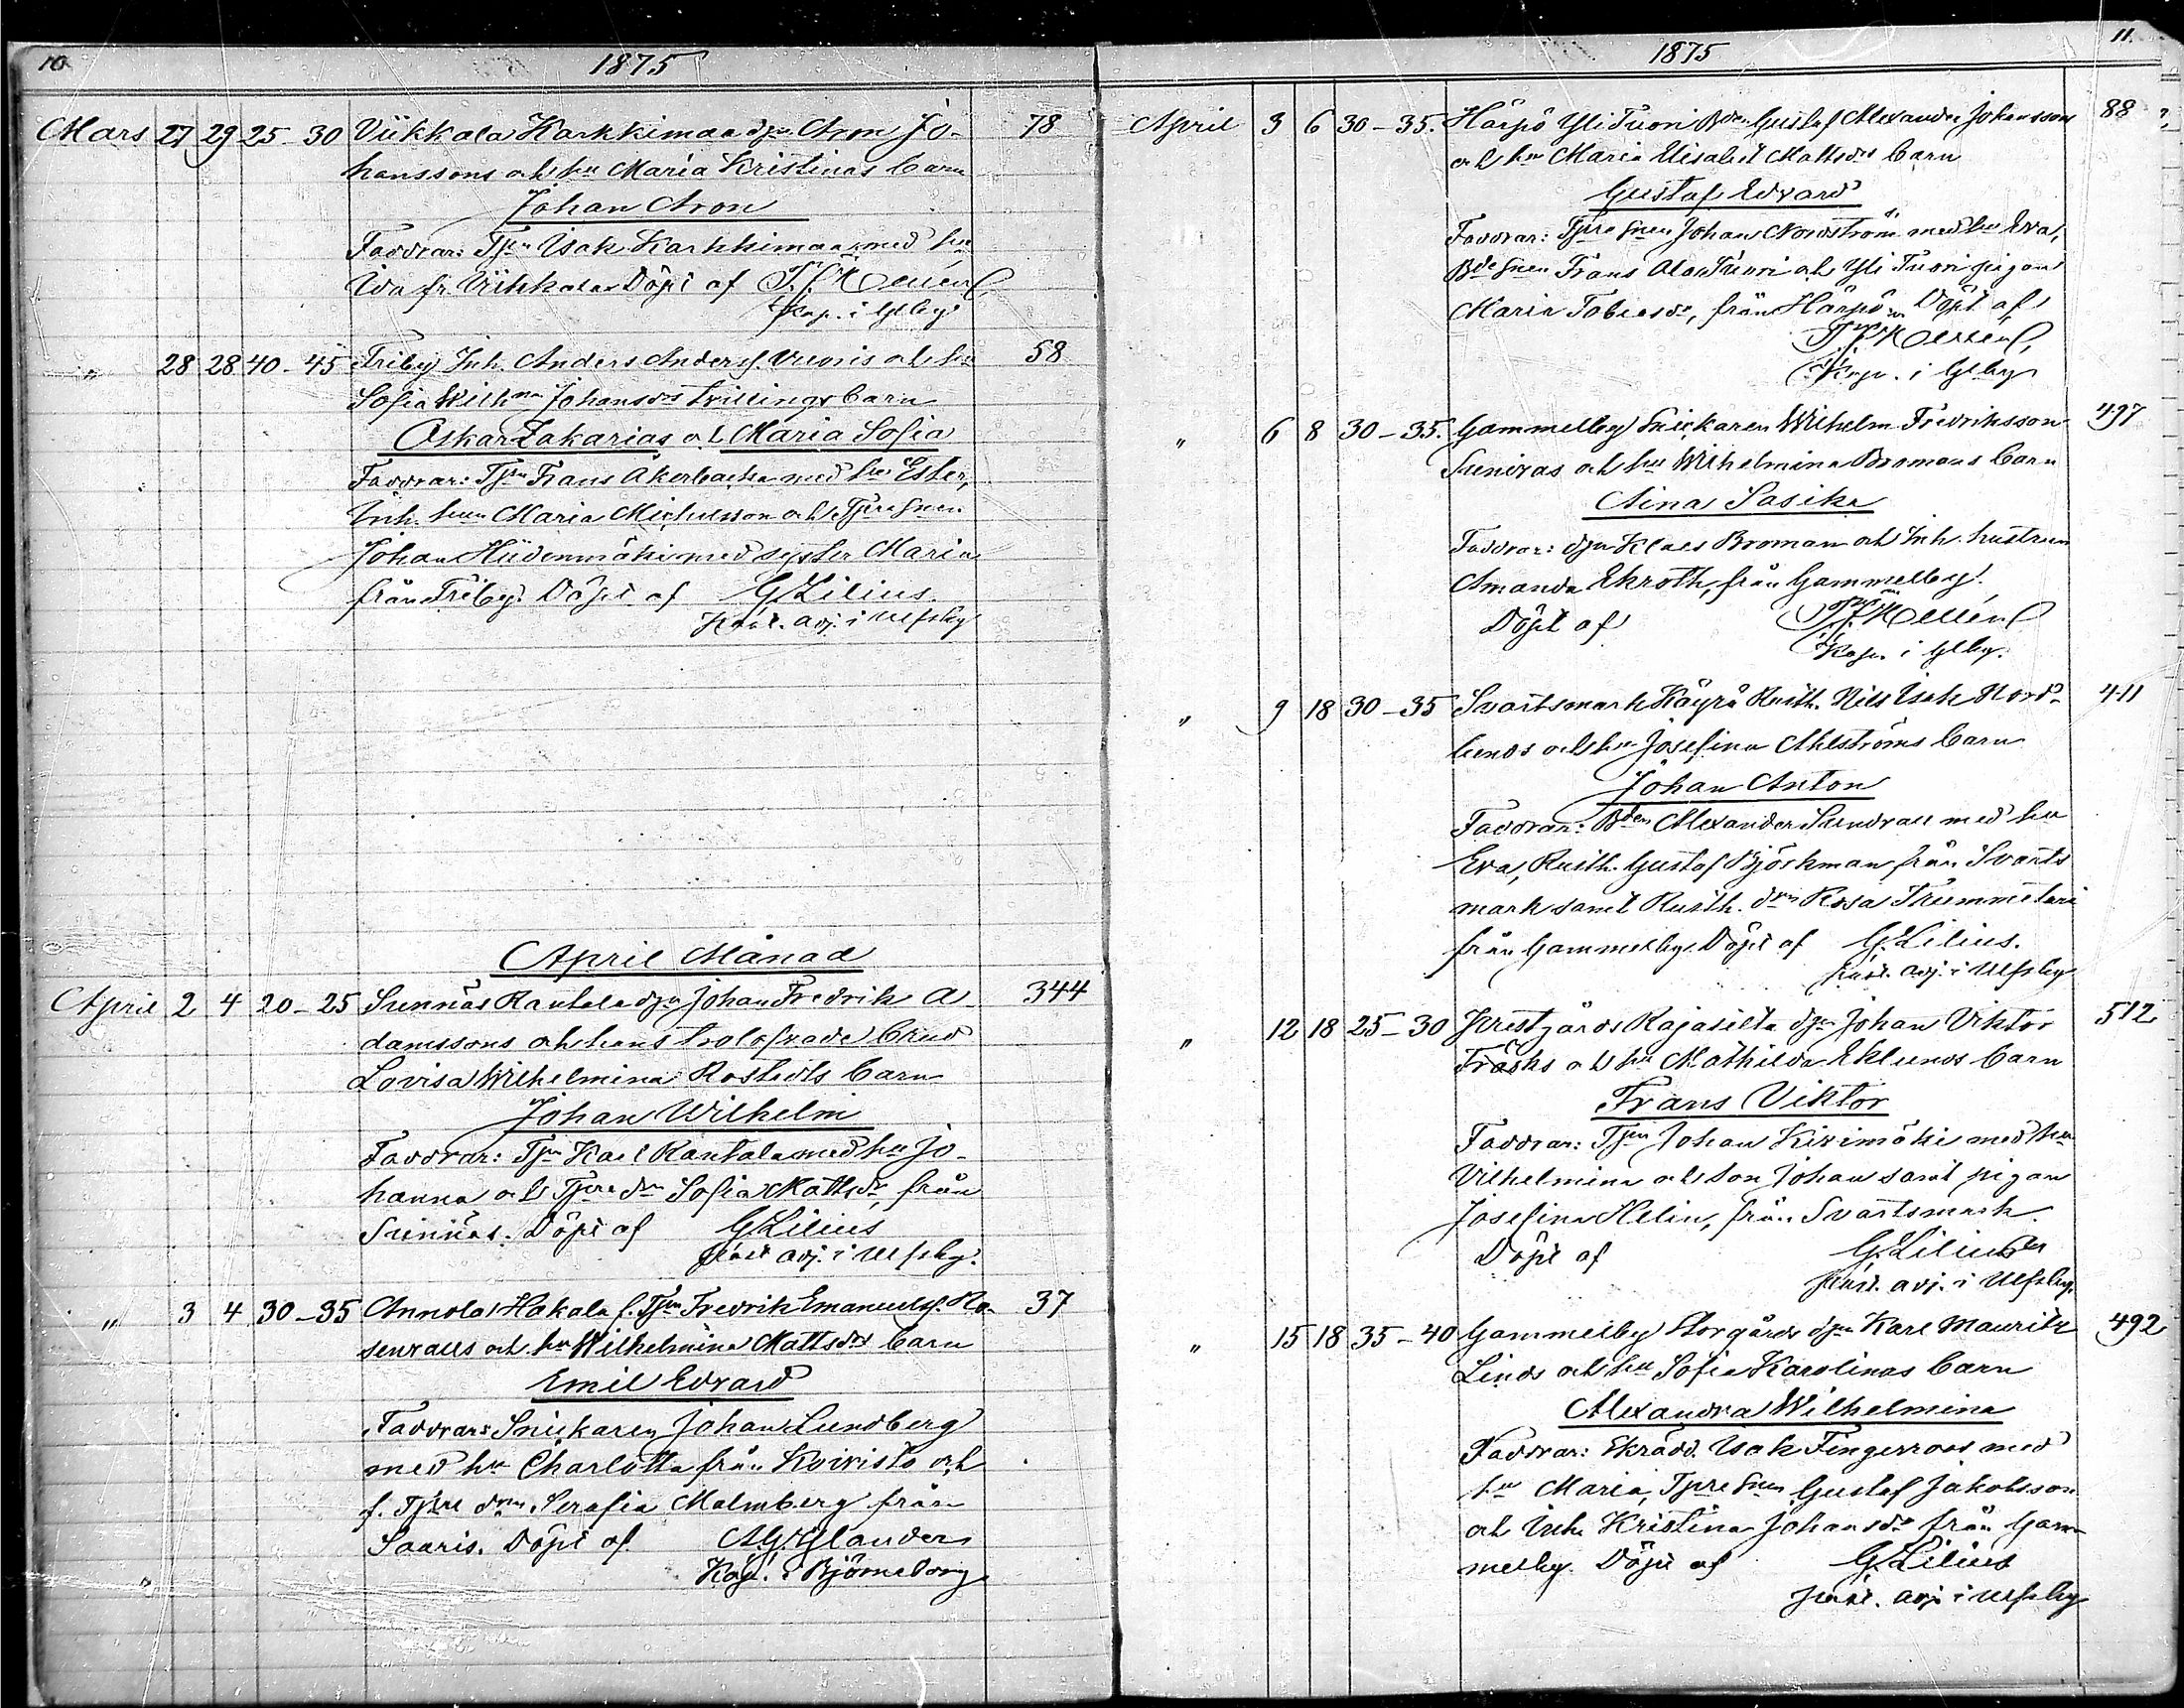 10 1875
Mars 27 29 25-30 Viikkala Karkkimaa dgn Aron Jo- 78
hanssons och hu Maria Kristinas barn
Johan Aron
Faddrar: Tjpn Isak Karkkimaa med hu
Ida fr. Viikkala Döpt af
Kap. i Glby
" 28 28 40-45 Friby Inh. Anders Anders. Vuoris och hu 58
Sofia Wilhna Johansdrs tvillingsbarn
Oskar Zakarias och Maria Sofia
Faddrar: Tjpn Frans Åkerbacka med hu Ester,
Inh. hun Maria Michelsson och Tjpresonen
Johan Hiidenmäki med syster Maria
från Friby. Döpt af G. Lilius.
Past. adj. i Ulfsby
April Månad
April 2 4 20-25 Sunnäs Rantala dgn Johan Fredrik A- 344
damssons och hans trolofvade brud
Lovisa Wilhelmina Rostedts barn
Johan Wilhelm
Faddrar: Tjpn Karl Rantala med hu Jo-
hanna och Tjpredn Sofia Mattsdr, från
Sunnäs. Döpt af G. Lilius
Past. adj. i Ulfsby.
" 3 4 30-35 Annola Hakala f. Tjpn Fredrik Emanuels. Ro- 37
senvalls och hu Wilhelmina Mattsdrs barn
Emil Edvard
Faddrar: Snickaren Johan Lundberg
med hu Charlotta från Koivisto och
f. Tjpre drn Serafia Malmberg från
Saaris. Döpt af
Kap. i Björneborg
"
11. 1875
April 3 6 30-35. Härpö Yli Tuori Bden Gustaf Alexander Johansson 88
och hu Maria Elisabet Mattsdrs barn
Gustaf Edvard
Faddrar: Tjpresonen Johan Nordström med hu Eva,
Bdesonen Frans Ala Tuori och Yli Tuori pigan
Maria Tobiasdr, från Härpö Döpt af
Kap. i Glby
" 6 8 30-35. Gammelby Snickaren Wilhelm Fredriksson 497
Sunivas och hu Wilhelmina Bromans barn
Aina Sasika
Faddrar: dgn Klaes Broman och Inh. hustrun
Amanda Ekroth, från Gammelby.
Döpt af
Kap. i Glby.
" 9 18 30-35 Svartsmark Käyrä Rusth. Nils Isak Nord- 411
lunds och hu Josefina Ahlströms barn
Johan Anton
Faddrar: Bden Alexander Sundvall med hu
Eva, Rusth. Gustaf Björkman från Svarts
mark samt Rusth. drn Rosa Trummetari
från Gammelby. Döpt af G. Lilius.
Past. adj. i Ulfsby
" 12 18 25-30 Krestgårds Rajasilta dgn Johan Viktor 512
Träsks och hu Mathilda Eklunds barn
Frans Viktor
Faddrar: Tjpn Johan Kivimäki med hu
Vilhelmina och son Johan samt pigan
Josefina Helin, från Svartsmark.
Döpt af G. Lilius
Past. adj. i Ulfsby.
" 15 18 35-40 Gammelby Storgårds dgn Karl Mauritz 492
Linds och hu Sofia Karolinas barn
Alexandra Wilhelmina
Faddrar: Skrädd. Isak Fingerroos med
hu Maria, Tjpresonen Gustaf Jakobsson
och Inh. Kristina Johansdr från Gam-
melby. Döpt af G. Lilius
Past. adj. i Ulfsby